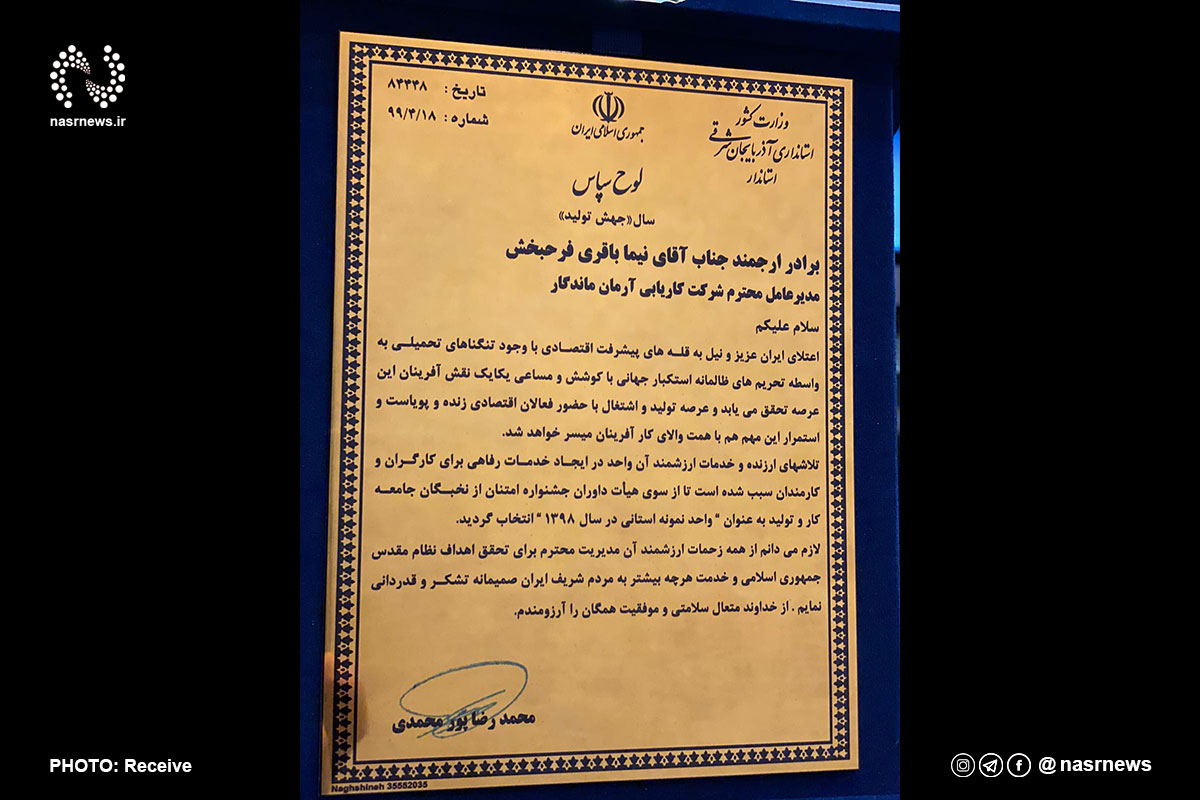 nasrnews.ir
جمهوری اسلامی ایران
وزارت کشور
استانداری آذربایجان شرقی
استاندار
تاریخ : ۸۳۳۴۸
شماره : ۹۹/۴/۱۸
لوح سپاس
سال «جهش تولید»
برادر ارجمند جناب آقای نیما باقری فرحبخش
مدیرعامل محترم شرکت کاریابی آرمان ماندگار
سلام علیکم
اعتلای ایران عزیز و نیل به قله های پیشرفت اقتصادی با وجود تنگناهای تحمیلی به
واسطه تحریم های ظالمانه استکبار جهانی با کوشش و مساعی یکایک نقش آفرینان این
عرصه تحقق می یابد و عرصه تولید و اشتغال با حضور فعالان اقتصادی زنده و پویاست و
استمرار این مهم هم با همت والای کار آفرینان میسر خواهد شد.
تلاشهای ارزنده و خدمات ارزشمند آن واحد در ایجاد خدمات رفاهی برای کارگران و
کارمندان سبب شده است تا از سوی هیأت داوران جشنواره امتنان از نخبگان جامعه
کار و تولید به عنوان " واحد نمونه استانی در سال ۱۳۹۸ " انتخاب گردید.
لازم می دانم از همه زحمات ارزشمند آن مدیریت محترم برای تحقق اهداف نظام مقدس
جمهوری اسلامی و خدمت هرچه بیشتر به مردم شریف ایران صمیمانه تشکر و قدردانی
نمایم . از خداوند متعال سلامتی و موفقیت همگان را آرزومندم.
محمد رضا پور محمدی
Naghshineh 35552035
PHOTO: Receive
@nasrnews